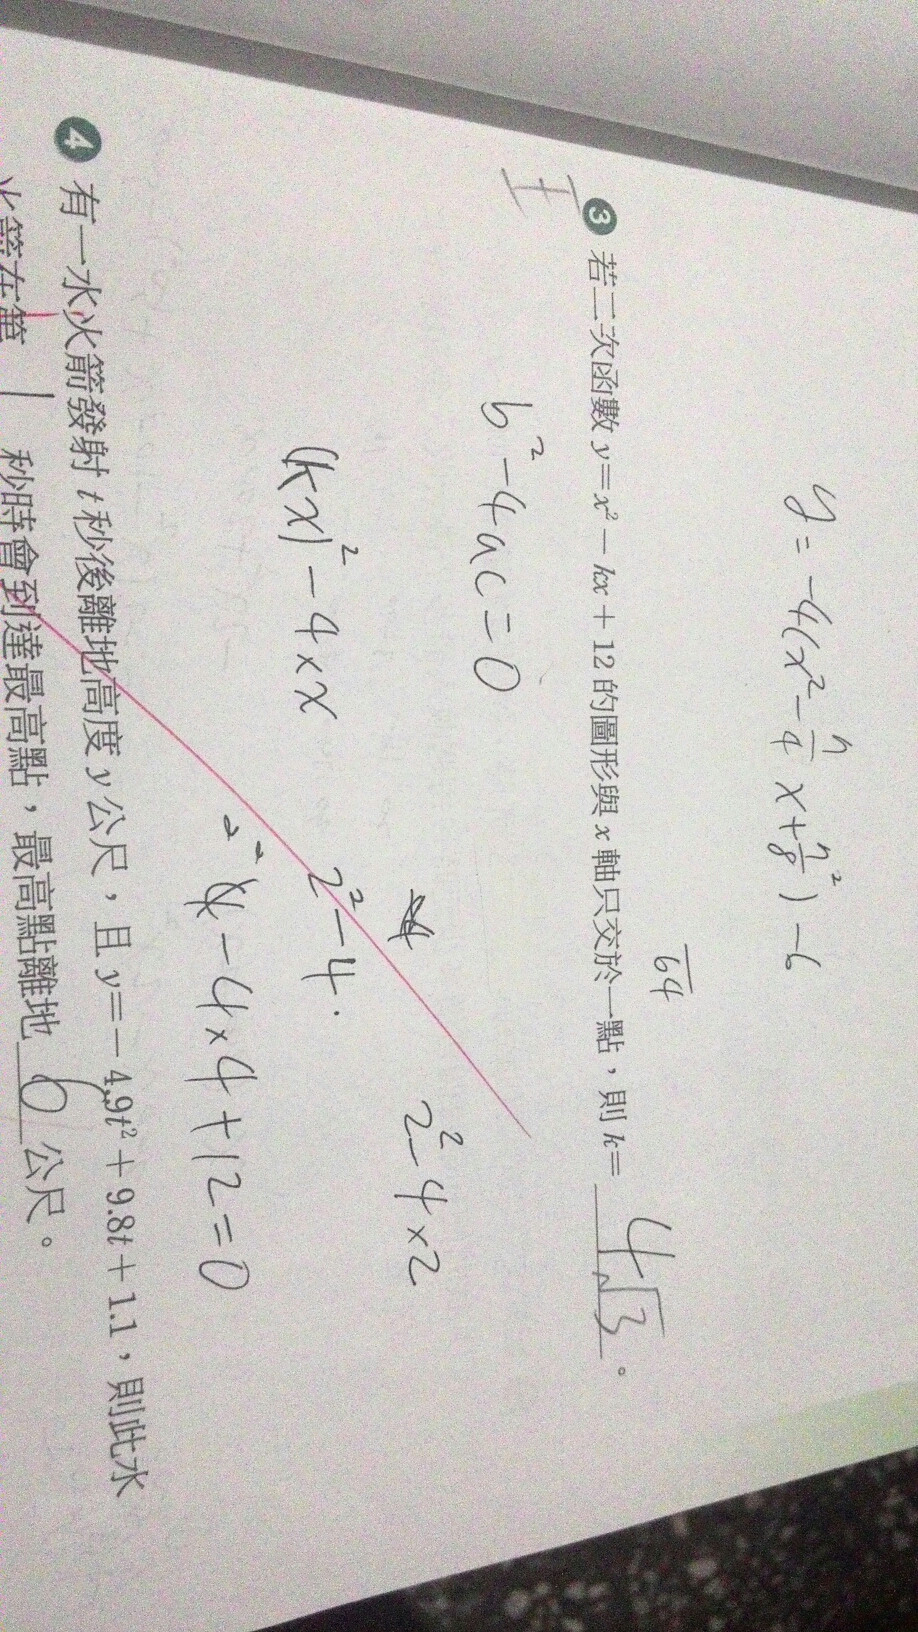 y = -4(x² - n/4 x + n/8 ²) - 6
64
❸ 若二次函數 y=x²-kx+12 的圖形與 x 軸只交於一點，則 k= 4√3 。
b²-4ac=0
2²-4×2
(kx)²-4×x
2²-4.
-4×4+12=0
❹ 有一水火箭發射 t 秒後離地高度 y 公尺，且 y=-4.9t²+9.8t+1.1，則此水
火箭在第 1 秒時會到達最高點，最高點離地 6 公尺。